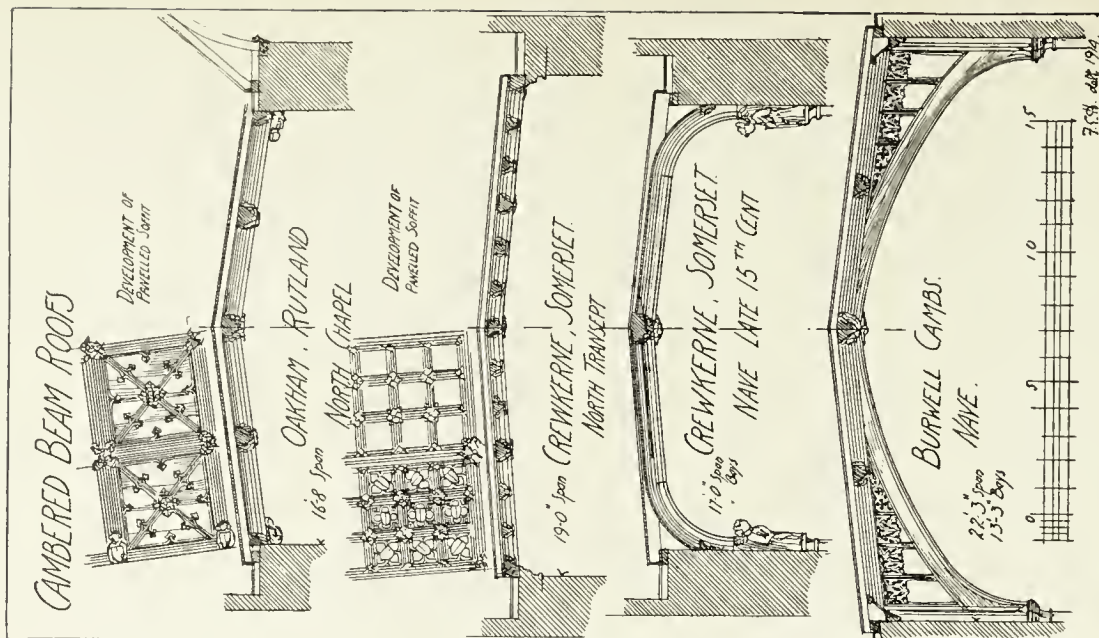 CAMBERED BEAM ROOFS
DEVELOPMENT OF
PANELLED SOFFIT
OAKHAM, RUTLAND
NORTH CHAPEL
16'·8 Span
DEVELOPMENT OF
PANELLED SOFFIT
19'·0" Span CREWKERNE, SOMERSET.
NORTH TRANSEPT
CREWKERNE, SOMERSET.
NAVE LATE 15TH CENT
Span
Bays
BURWELL CAMBS.
NAVE.
22'·3" Span
13'·3" Bays
0 5 10 15
1914.